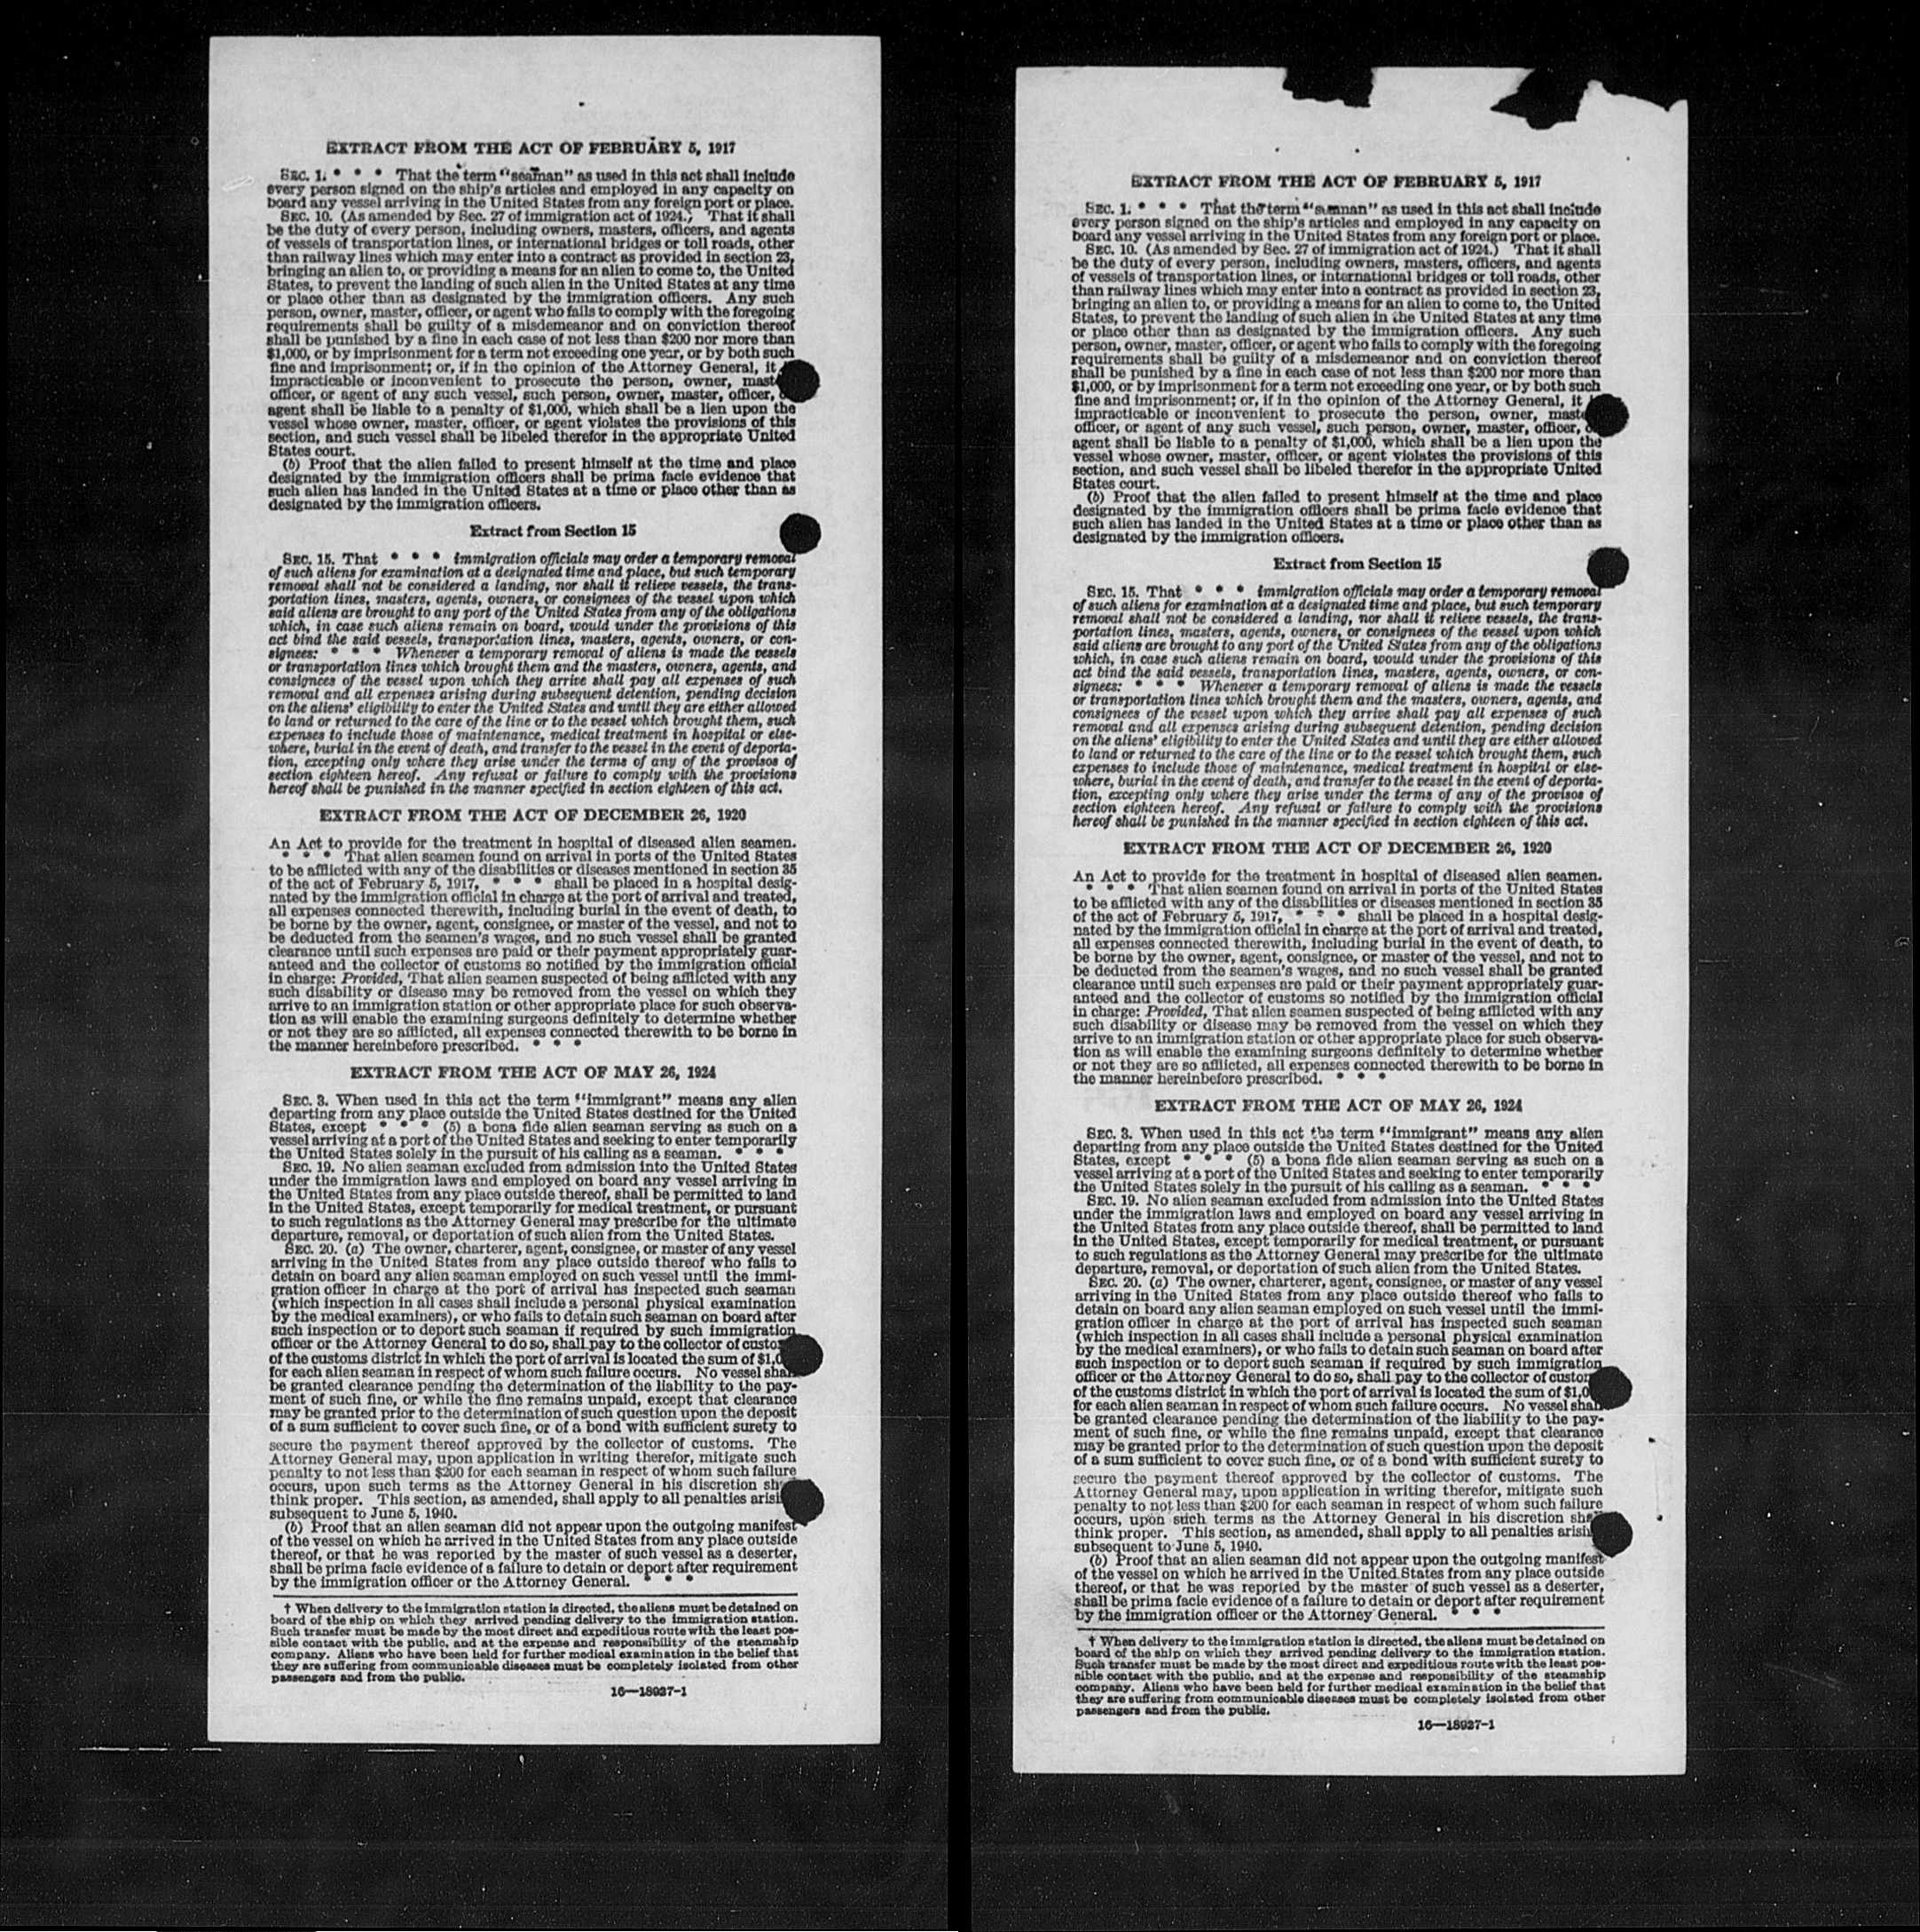 EXTRACT FROM THE ACT OF FEBRUARY 5, 1917
SEC. 1. * * * That the term "seaman" as used in this act shall include
every person signed on the ship's articles and employed in any capacity on
board any vessel arriving in the United States from any foreign port or place.
SEC. 10. (As amended by Sec. 27 of immigration act of 1924.) That it shall
be the duty of every person, including owners, masters, officers, and agents
of vessels of transportation lines, or international bridges or toll roads, other
than railway lines which may enter into a contract as provided in section 23,
bringing an alien to, or providing a means for an alien to come to, the United
States, to prevent the landing of such alien in the United States at any time
or place other than as designated by the immigration officers. Any such
person, owner, master, officer, or agent who fails to comply with the foregoing
requirements shall be guilty of a misdemeanor and on conviction thereof
shall be punished by a fine in each case of not less than $200 nor more than
$1,000, or by imprisonment for a term not exceeding one year, or by both such
fine and imprisonment; or, if in the opinion of the Attorney General, it
impracticable or inconvenient to prosecute the person, owner, mast
officer, or agent of any such vessel, such person, owner, master, officer,
agent shall be liable to a penalty of $1,000, which shall be a lien upon the
vessel whose owner, master, officer, or agent violates the provisions of this
section, and such vessel shall be libeled therefor in the appropriate United
States court.
(b) Proof that the alien failed to present himself at the time and place
designated by the immigration officers shall be prima facie evidence that
such alien has landed in the United States at a time or place other than as
designated by the immigration officers.
Extract from Section 15
SEC. 15. That * * * immigration officials may order a temporary removal
of such aliens for examination at a designated time and place, but such temporary
removal shall not be considered a landing, nor shall it relieve vessels, the trans-
portation lines, masters, agents, owners, or consignees of the vessel upon which
said aliens are brought to any port of the United States from any of the obligations
which, in case such aliens remain on board, would under the provisions of this
act bind the said vessels, transportation lines, masters, agents, owners, or con-
signees: * * * Whenever a temporary removal of aliens is made the vessels
or transportation lines which brought them and the masters, owners, agents, and
consignees of the vessel upon which they arrive shall pay all expenses of such
removal and all expenses arising during subsequent detention, pending decision
on the aliens' eligibility to enter the United States and until they are either allowed
to land or returned to the care of the line or to the vessel which brought them, such
expenses to include those of maintenance, medical treatment in hospital or else-
where, burial in the event of death, and transfer to the vessel in the event of deporta-
tion, excepting only where they arise under the terms of any of the provisos of
section eighteen hereof. Any refusal or failure to comply with the provisions
hereof shall be punished in the manner specified in section eighteen of this act.
EXTRACT FROM THE ACT OF DECEMBER 26, 1920
An Act to provide for the treatment in hospital of diseased alien seamen.
* * * That alien seamen found on arrival in ports of the United States
to be afflicted with any of the disabilities or diseases mentioned in section 35
of the act of February 5, 1917, * * * shall be placed in a hospital desig-
nated by the immigration official in charge at the port of arrival and treated,
all expenses connected therewith, including burial in the event of death, to
be borne by the owner, agent, consignee, or master of the vessel, and not to
be deducted from the seamen's wages, and no such vessel shall be granted
clearance until such expenses are paid or their payment appropriately guar-
anteed and the collector of customs so notified by the immigration official
in charge: Provided, That alien seamen suspected of being afflicted with any
such disability or disease may be removed from the vessel on which they
arrive to an immigration station or other appropriate place for such observa-
tion as will enable the examining surgeons definitely to determine whether
or not they are so afflicted, all expenses connected therewith to be borne in
the manner hereinbefore prescribed. * * *
EXTRACT FROM THE ACT OF MAY 26, 1924
SEC. 3. When used in this act the term "immigrant" means any alien
departing from any place outside the United States destined for the United
States, except * * * (5) a bona fide alien seaman serving as such on a
vessel arriving at a port of the United States and seeking to enter temporarily
the United States solely in the pursuit of his calling as a seaman. * * *
SEC. 19. No alien seaman excluded from admission into the United States
under the immigration laws and employed on board any vessel arriving in
the United States from any place outside thereof, shall be permitted to land
in the United States, except temporarily for medical treatment, or pursuant
to such regulations as the Attorney General may prescribe for the ultimate
departure, removal, or deportation of such alien from the United States.
SEC. 20. (a) The owner, charterer, agent, consignee, or master of any vessel
arriving in the United States from any place outside thereof who fails to
detain on board any alien seaman employed on such vessel until the immi-
gration officer in charge at the port of arrival has inspected such seaman
(which inspection in all cases shall include a personal physical examination
by the medical examiners), or who fails to detain such seaman on board after
such inspection or to deport such seaman if required by such immigration
officer or the Attorney General to do so, shall pay to the collector of custo
of the customs district in which the port of arrival is located the sum of $1,0
for each alien seaman in respect of whom such failure occurs. No vessel shall
be granted clearance pending the determination of the liability to the pay-
ment of such fine, or while the fine remains unpaid, except that clearance
may be granted prior to the determination of such question upon the deposit
of a sum sufficient to cover such fine, or of a bond with sufficient surety to
secure the payment thereof approved by the collector of customs. The
Attorney General may, upon application in writing therefor, mitigate such
penalty to not less than $200 for each seaman in respect of whom such failure
occurs, upon such terms as the Attorney General in his discretion sh
think proper. This section, as amended, shall apply to all penalties arisi
subsequent to June 5, 1940.
(b) Proof that an alien seaman did not appear upon the outgoing manifest
of the vessel on which he arrived in the United States from any place outside
thereof, or that he was reported by the master of such vessel as a deserter,
shall be prima facie evidence of a failure to detain or deport after requirement
by the immigration officer or the Attorney General. * * *
† When delivery to the immigration station is directed, the aliens must be detained on
board of the ship on which they arrived pending delivery to the immigration station.
Such transfer must be made by the most direct and expeditious route with the least pos-
sible contact with the public, and at the expense and responsibility of the steamship
company. Aliens who have been held for further medical examination in the belief that
they are suffering from communicable diseases must be completely isolated from other
passengers and from the public.
16—18927-1
EXTRACT FROM THE ACT OF FEBRUARY 5, 1917
SEC. 1. * * * That the term "seaman" as used in this act shall include
every person signed on the ship's articles and employed in any capacity on
board any vessel arriving in the United States from any foreign port or place.
SEC. 10. (As amended by Sec. 27 of immigration act of 1924.) That it shall
be the duty of every person, including owners, masters, officers, and agents
of vessels of transportation lines, or international bridges or toll roads, other
than railway lines which may enter into a contract as provided in section 23,
bringing an alien to, or providing a means for an alien to come to, the United
States, to prevent the landing of such alien in the United States at any time
or place other than as designated by the immigration officers. Any such
person, owner, master, officer, or agent who fails to comply with the foregoing
requirements shall be guilty of a misdemeanor and on conviction thereof
shall be punished by a fine in each case of not less than $200 nor more than
$1,000, or by imprisonment for a term not exceeding one year, or by both such
fine and imprisonment; or, if in the opinion of the Attorney General, it
impracticable or inconvenient to prosecute the person, owner, maste
officer, or agent of any such vessel, such person, owner, master, officer, o
agent shall be liable to a penalty of $1,000, which shall be a lien upon the
vessel whose owner, master, officer, or agent violates the provisions of this
section, and such vessel shall be libeled therefor in the appropriate United
States court.
(b) Proof that the alien failed to present himself at the time and place
designated by the immigration officers shall be prima facie evidence that
such alien has landed in the United States at a time or place other than as
designated by the immigration officers.
Extract from Section 15
SEC. 15. That * * * immigration officials may order a temporary removal
of such aliens for examination at a designated time and place, but such temporary
removal shall not be considered a landing, nor shall it relieve vessels, the trans-
portation lines, masters, agents, owners, or consignees of the vessel upon which
said aliens are brought to any port of the United States from any of the obligations
which, in case such aliens remain on board, would under the provisions of this
act bind the said vessels, transportation lines, masters, agents, owners, or con-
signees: * * * Whenever a temporary removal of aliens is made the vessels
or transportation lines which brought them and the masters, owners, agents, and
consignees of the vessel upon which they arrive shall pay all expenses of such
removal and all expenses arising during subsequent detention, pending decision
on the aliens' eligibility to enter the United States and until they are either allowed
to land or returned to the care of the line or to the vessel which brought them, such
expenses to include those of maintenance, medical treatment in hospital or else-
where, burial in the event of death, and transfer to the vessel in the event of deporta-
tion, excepting only where they arise under the terms of any of the provisos of
section eighteen hereof. Any refusal or failure to comply with the provisions
hereof shall be punished in the manner specified in section eighteen of this act.
EXTRACT FROM THE ACT OF DECEMBER 26, 1920
An Act to provide for the treatment in hospital of diseased alien seamen.
* * * That alien seamen found on arrival in ports of the United States
to be afflicted with any of the disabilities or diseases mentioned in section 35
of the act of February 5, 1917, * * * shall be placed in a hospital desig-
nated by the immigration official in charge at the port of arrival and treated,
all expenses connected therewith, including burial in the event of death, to
be borne by the owner, agent, consignee, or master of the vessel, and not to
be deducted from the seamen's wages, and no such vessel shall be granted
clearance until such expenses are paid or their payment appropriately guar-
anteed and the collector of customs so notified by the immigration official
in charge: Provided, That alien seamen suspected of being afflicted with any
such disability or disease may be removed from the vessel on which they
arrive to an immigration station or other appropriate place for such observa-
tion as will enable the examining surgeons definitely to determine whether
or not they are so afflicted, all expenses connected therewith to be borne in
the manner hereinbefore prescribed. * * *
EXTRACT FROM THE ACT OF MAY 26, 1924
SEC. 3. When used in this act the term "immigrant" means any alien
departing from any place outside the United States destined for the United
States, except * * * (5) a bona fide alien seaman serving as such on a
vessel arriving at a port of the United States and seeking to enter temporarily
the United States solely in the pursuit of his calling as a seaman. * * *
SEC. 19. No alien seaman excluded from admission into the United States
under the immigration laws and employed on board any vessel arriving in
the United States from any place outside thereof, shall be permitted to land
in the United States, except temporarily for medical treatment, or pursuant
to such regulations as the Attorney General may prescribe for the ultimate
departure, removal, or deportation of such alien from the United States.
SEC. 20. (a) The owner, charterer, agent, consignee, or master of any vessel
arriving in the United States from any place outside thereof who fails to
detain on board any alien seaman employed on such vessel until the immi-
gration officer in charge at the port of arrival has inspected such seaman
(which inspection in all cases shall include a personal physical examination
by the medical examiners), or who fails to detain such seaman on board after
such inspection or to deport such seaman if required by such immigration
officer or the Attorney General to do so, shall pay to the collector of custom
of the customs district in which the port of arrival is located the sum of $1,0
for each alien seaman in respect of whom such failure occurs. No vessel shall
be granted clearance pending the determination of the liability to the pay-
ment of such fine, or while the fine remains unpaid, except that clearance
may be granted prior to the determination of such question upon the deposit
of a sum sufficient to cover such fine, or of a bond with sufficient surety to
secure the payment thereof approved by the collector of customs. The
Attorney General may, upon application in writing therefor, mitigate such
penalty to not less than $200 for each seaman in respect of whom such failure
occurs, upon such terms as the Attorney General in his discretion sha
think proper. This section, as amended, shall apply to all penalties arisin
subsequent to June 5, 1940.
(b) Proof that an alien seaman did not appear upon the outgoing manifest
of the vessel on which he arrived in the United States from any place outside
thereof, or that he was reported by the master of such vessel as a deserter,
shall be prima facie evidence of a failure to detain or deport after requirement
by the immigration officer or the Attorney General. * * *
† When delivery to the immigration station is directed, the aliens must be detained on
board of the ship on which they arrived pending delivery to the immigration station.
Such transfer must be made by the most direct and expeditious route with the least pos-
sible contact with the public, and at the expense and responsibility of the steamship
company. Aliens who have been held for further medical examination in the belief that
they are suffering from communicable diseases must be completely isolated from other
passengers and from the public.
16—18927-1